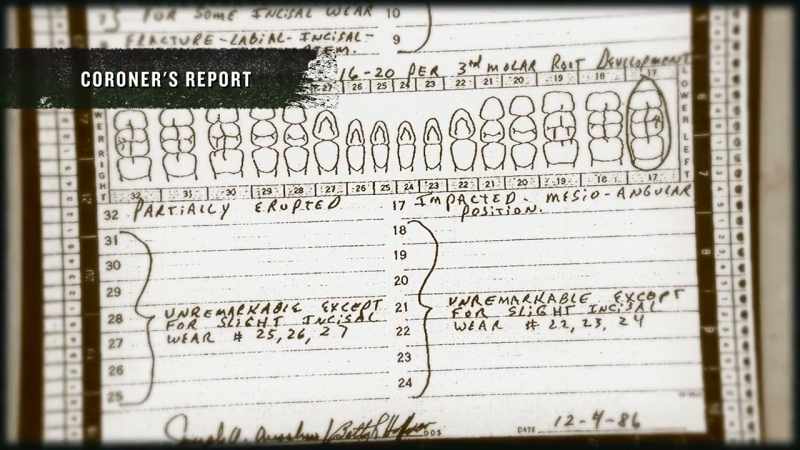 FOR SOME INCISAL WEAR 10
8 FRACTURE-LABIAL-INCISAL- 9
CORONER'S REPORT
16-20 PER 3rd MOLAR ROOT DEVELOPMENT
27 26 25 24 23 22 21 20 19 18 17
LOWER LEFT
RIGHT
32 31 30 29 28 27 26 25 24 23 22 21 20 19 18 17
32 PARTIALLY ERUPTED 17 IMPACTED - MESIO-ANGULAR
POSITION.
31 18
30 19
29 20
28 UNREMARKABLE EXCEPT 21 UNREMARKABLE EXCEPT
FOR SLIGHT INCISAL FOR SLIGHT INCISAL
27 WEAR # 25, 26, 27 22 WEAR # 22, 23, 24
26 23
25 24
DDS DATE 12-4-86